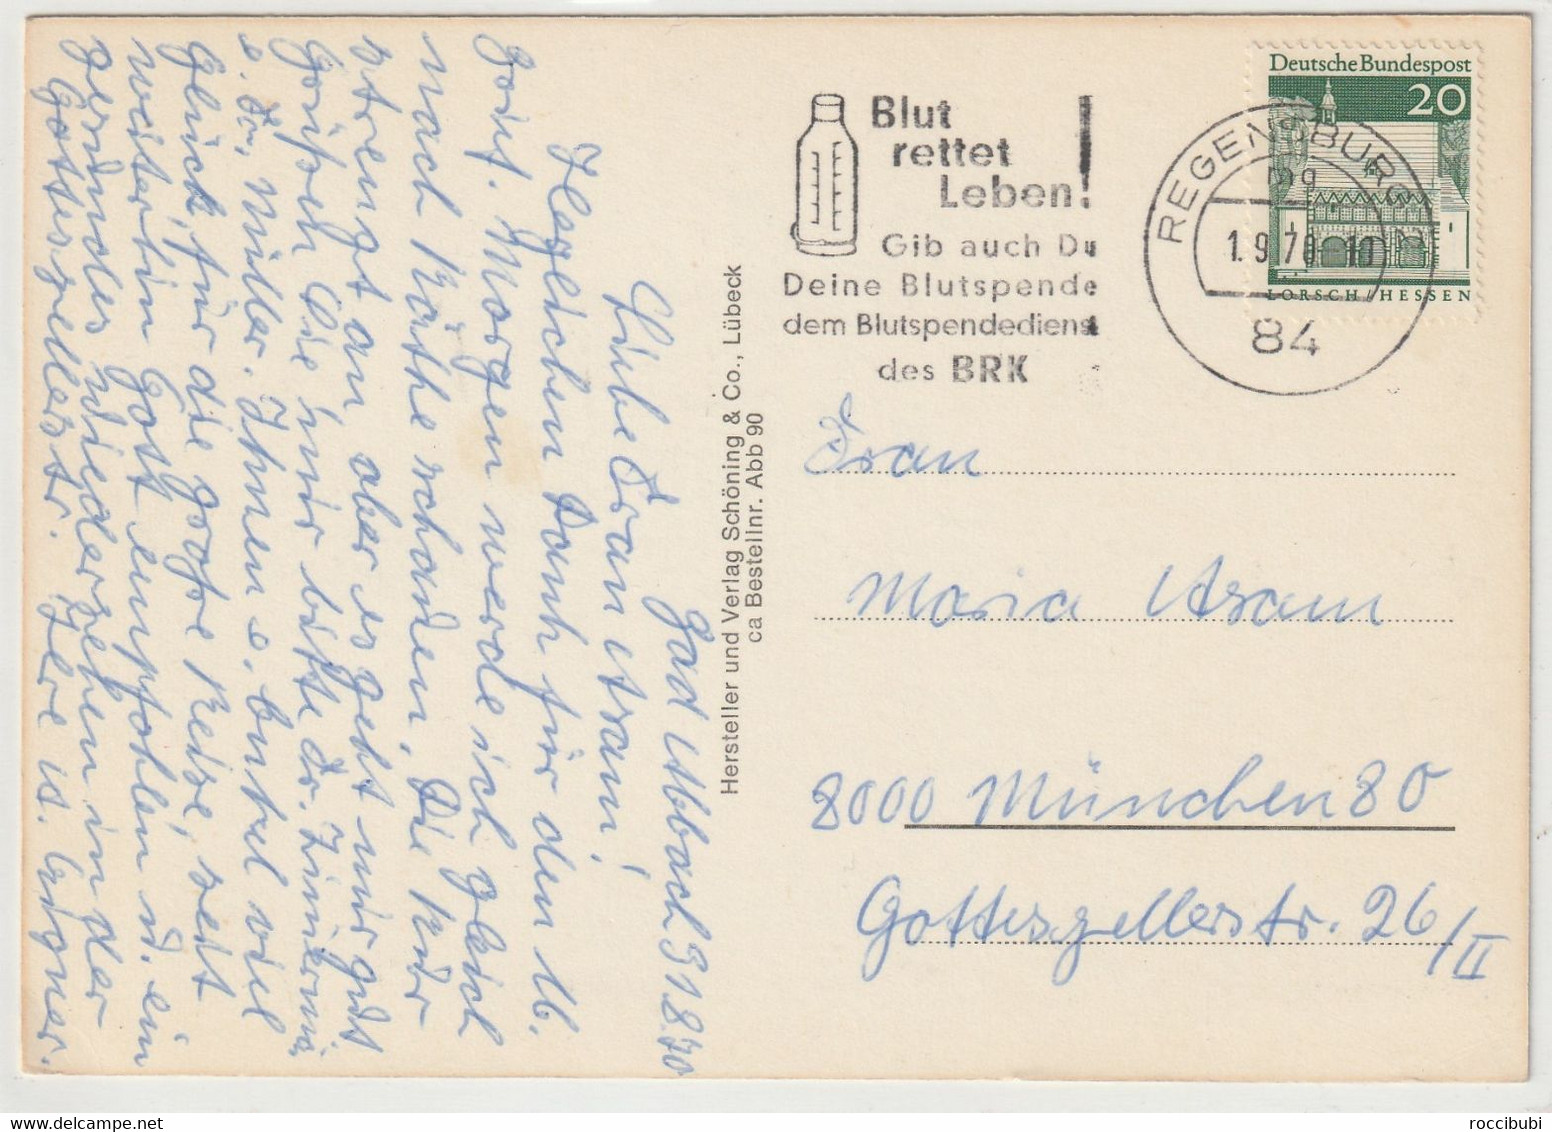 Bad Abbach 31.8.70
Liebe Frau Aram!
Herzlichen Dank für den 16.
Brief. Morgen werde ich gleich
nach Käthe schauen. Die Kur
strengt an aber es geht mir gut
Grüßen Sie mir bitte Fr. Zimerm.
u. Fr. Müller. Ihnen u. viel
Glück für die große Reise, seit
weiterhin Gott empfohlen u. ein
gesundes Wiedersehen in der
Gottesgellerstr. Ihre
Hersteller und Verlag Schöning & Co., Lübeck
ca Bestellnr. Abb 90
Blut
rettet
Leben!
Gib auch Du
Deine Blutspende
dem Blutspendedienst
des BRK
REGENSBURG 2
mg
1.9.70-10
84
Deutsche Bundespost
20
LORSCH/HESSEN
Frau
Maria Aram
8000 München 80
Gottesgellerstr. 26/II
roccibubi